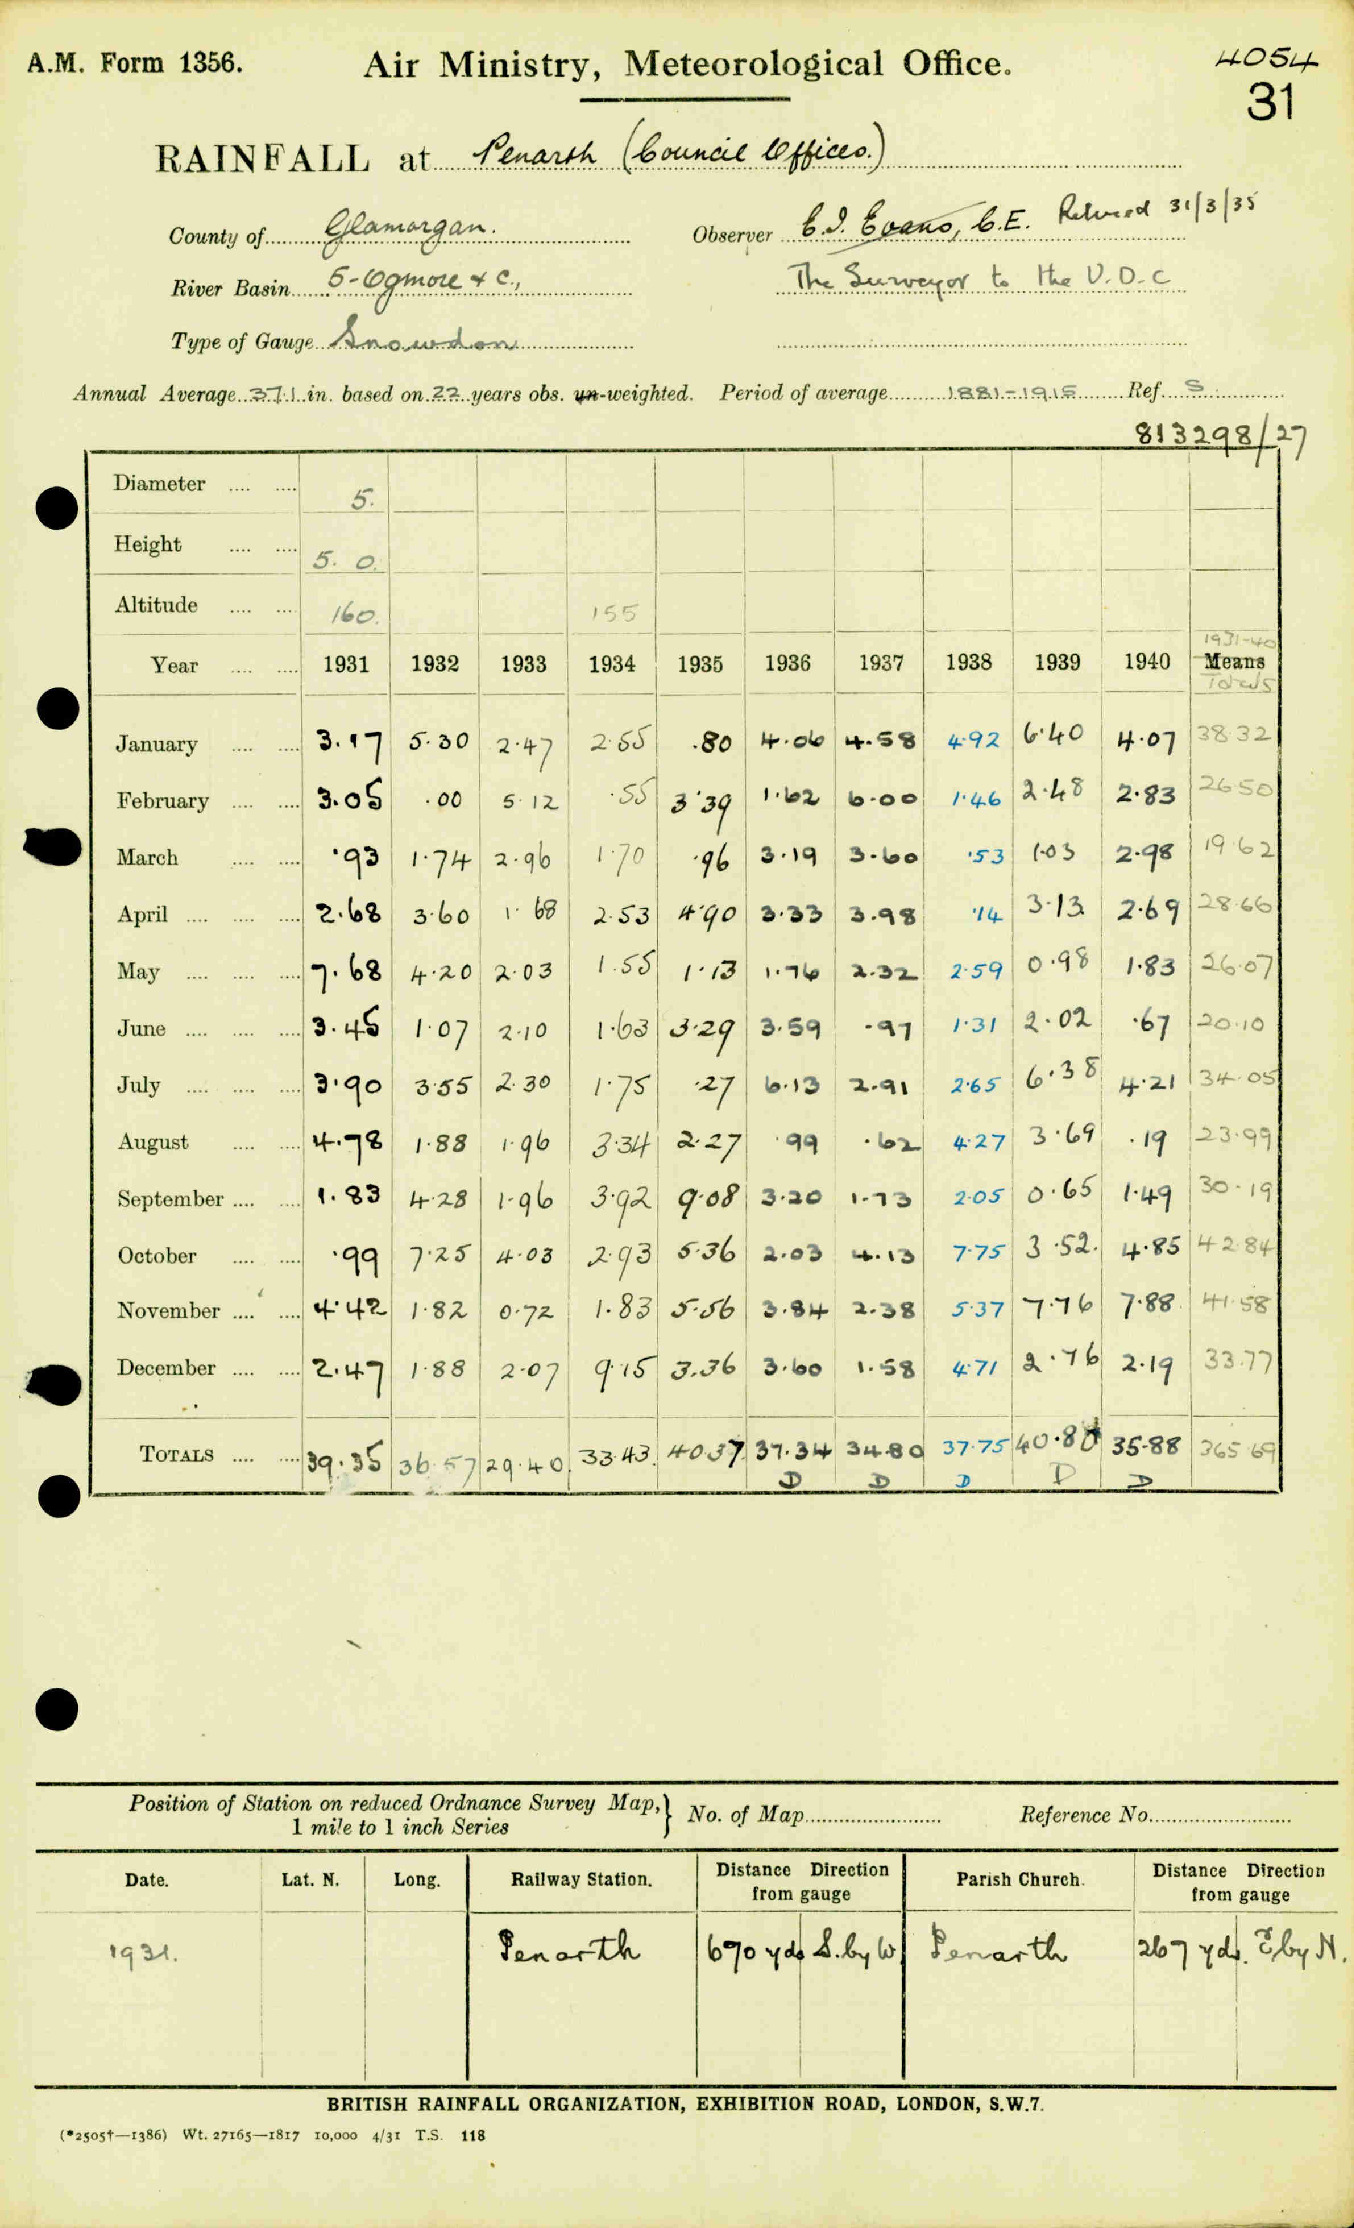 A.M. Form 1356. Air Ministry, Meteorological Office. 4054
31
RAINFALL at Penarth (Council Offices.)
County of Glamorgan. Observer C.I. Evans, C.E. Retired 31/3/35
River Basin 5-Ogmore & C., The Surveyor to the U.D.C
Type of Gauge Snowdon
Annual Average 37.1 in. based on 22 years obs. un-weighted. Period of average 1881-1915 Ref. S
813298/27
Diameter .... .... 5.
Height .... .... 5. 0.
Altitude .... .... 160. 155
1931-40
Year .... .... 1931 1932 1933 1934 1935 1936 1937 1938 1939 1940 Means
Totals
January .... .... 3.17 5.30 2.47 2.55 .80 4.06 4.58 4.92 6.40 4.07 38.32
February .... .... 3.05 .00 5.12 .55 3.39 1.62 6.00 1.46 2.48 2.83 26.50
March .... .... .93 1.74 2.96 1.70 .96 3.19 3.60 .53 1.03 2.98 19.62
April .... .... .... 2.68 3.60 1.68 2.53 4.90 3.33 3.98 .14 3.13 2.69 28.66
May .... .... .... 7.68 4.20 2.03 1.55 1.13 1.76 2.32 2.59 0.98 1.83 26.07
June .... .... .... 3.45 1.07 2.10 1.63 3.29 3.59 .97 1.31 2.02 .67 20.10
July .... .... .... 3.90 3.55 2.30 1.75 .27 6.13 2.91 2.65 6.38 4.21 34.05
August .... .... 4.78 1.88 1.96 3.34 2.27 .99 .62 4.27 3.69 .19 23.99
September .... .... 1.83 4.28 1.96 3.92 9.08 3.20 1.73 2.05 0.65 1.49 30.19
October .... .... .99 7.25 4.03 2.93 5.36 2.03 4.13 7.75 3.52. 4.85 42.84
November .... .... 4.42 1.82 0.72 1.83 5.56 3.84 2.38 5.37 7.76 7.88 41.58
December .... .... 2.47 1.88 2.07 9.15 3.36 3.60 1.58 4.71 2.76 2.19 33.77
TOTALS .... .... 39.35 36.57 29.40 33.43 40.37 37.34 34.80 37.75 40.80 35.88 365.69
D D D D D
Position of Station on reduced Ordnance Survey Map,} No. of Map Reference No.
1 mile to 1 inch Series
Date. Lat. N. Long. Railway Station. Distance Direction from gauge Parish Church. Distance Direction from gauge
1931. Penarth 690 yds S. by W. Penarth 267 yds. E by N.
BRITISH RAINFALL ORGANIZATION, EXHIBITION ROAD, LONDON, S.W.7.
(*2505†—1386) Wt. 27165—1817 10,000 4/31 T.S. 118